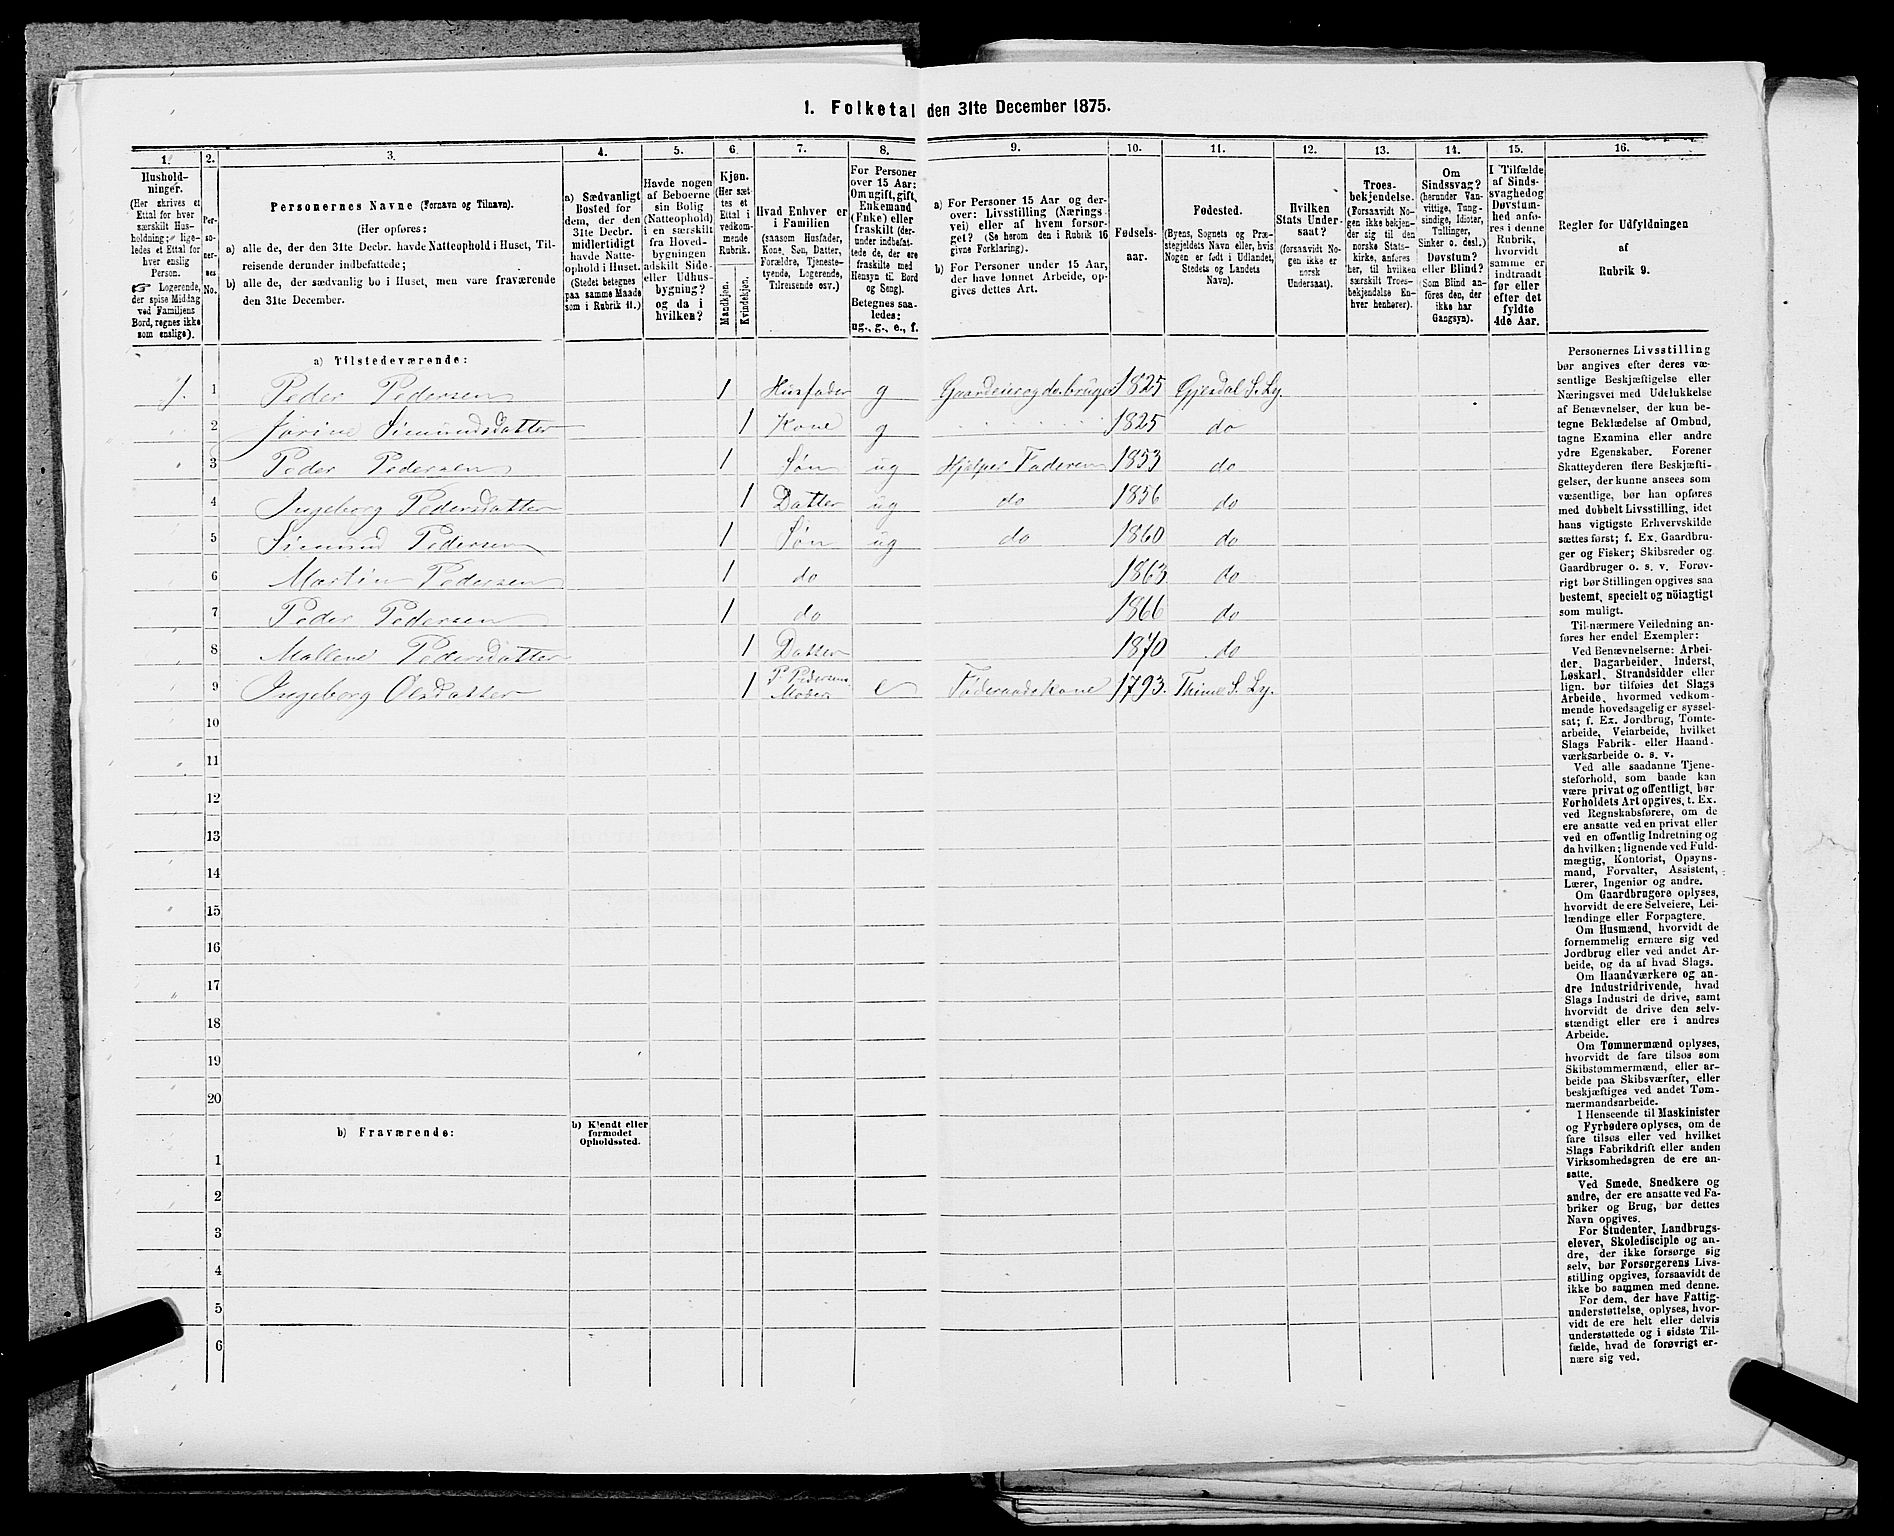 1. Folketal den 31te December 1875.
1.
2.
3.
4.
5.
6.
7.
8.
9.
10.
11.
12.
13.
14.
15.
16.
Hushold-
ninger.
(Her skrives et
Ettal for hver
særskilt Hus-
holdning; lige-
ledes et Ettal for
hver enslig
Person.
☞ Logerende,
der spise Middag
ved Familiens
Bord, regnes ikke
som enslige).
Per-
so-
ner-
nes
No.
Personernes Navne (Fornavn og Tilnavn).
(Her opføres:
a) alle de, der den 31te Decbr. havde Natteophold i Huset, Til-
reisende derunder indbefattede;
b) alle de, der sædvanlig bo i Huset, men vare fraværende
den 31te December.
a) Sædvanligt
Bosted for
dem, der den
31te Decbr.
midlertidigt
havde Natte-
ophold i Huset.
(Stedet betegnes
paa samme Maade
som i Rubrik 11.)
Havde nogen
af Beboerne
sin Bolig
(Natteophold)
i en særskilt
fra Hoved-
bygningen
adskilt Side-
eller Udhus-
bygning?
og da i
hvilken?
Kjøn.
(Her sæt-
tes et
Ettal i
vedkom-
mende
Rubrik.
Mandkjøn.
Kvindekjøn.
Hvad Enhver er
i Familien
(saasom Husfader,
Kone, Søn, Datter,
Forældre, Tjeneste-
tyende, Logerende,
Tilreisende osv.)
For Personer
over 15 Aar:
Om ugift, gift,
Enkemand
(Enke) eller
fraskilt (der-
under indbefat-
tede de, der ere
fraskilte med
Hensyn til Bord
og Seng).
Betegnes saa-
ledes:
ug., g., e., f.
a) For Personer 15 Aar og der-
over: Livsstilling (Nærings-
vei) eller af hvem forsør-
get? (Se herom den i Rubrik 16
givne Forklaring).
b) For Personer under 15 Aar,
der have lønnet Arbeide, op-
gives dettes Art.
Fødsels-
aar.
Fødested.
(Byens, Sognets og Præ-
stegjeldets Navn eller, hvis
Nogen er født i Udlandet,
Stedets og Landets
Navn).
Hvilken
Stats Under-
saat?
(forsaavidt No-
gen ikke er
norsk
Undersaat).
Troes-
bekjendelse.
(Forsaavidt No-
gen ikke bekjen-
der sig til den
norske Stats-
kirke, anføres
her, til hvilken
særskilt Troes-
bekjendelse En-
hver henhører).
Om
Sindssvag?
(herunder Van-
vittige, Tung-
sindige, Idioter,
Tullinger,
Sinker o. desl.)
Døvstum?
eller Blind?
(Som Blind an-
føres den, der
ikke har
Gangsyn).
I Tilfælde
af Sinds-
svaghed og
Døvstum-
hed anfø-
res i denne
Rubrik,
hvorvidt
samme er
indtraadt
før eller
efter det
fyldte
4de Aar.
Regler for Udfyldningen
af
Rubrik 9.
a) Tilstedeværende:
1. 1 Peder Pedersen 1 Husfader g Gaardeier og do. bruger 1825 Gjesdal S. Ly.
2 Jorine Simundsdatter 1 Kone g 1825 do
3 Peder Pedersen 1 Søn ug Hjelper Faderen 1853 do
4 Ingeborg Pedersdatter 1 Datter ug do 1856 do
5 Simund Pedersen 1 Søn ug do 1860 do
6 Martin Pedersen 1 do 1863 do
7 Peder Pedersen 1 do 1866 do
8 Mallene Pedersdatter 1 Datter 1870 do
9 Ingeborg Olsdatter 1 P. Pedersens Moder e Føderaadskone 1793. Thime S. Ly.
10
11
12
13
14
15
16
17
18
19
20
b) Fraværende:
b) Kjendt eller
formodet
Opholdssted.
1
2
3
4
5
6
Personernes Livsstilling
bør angives efter deres væ-
sentlige Beskjæftigelse eller
Næringsvei med Udelukkelse
af Benævnelser, der kun be-
tegne Beklædelse af Ombud,
tagne Examina eller andre
ydre Egenskaber. Forener
Skatteyderen flere Beskjæfti-
gelser, der kunne ansees som
væsentlige, bør han opføres
med dobbelt Livsstilling, idet
hans vigtigste Erhvervskilde
sættes først; f. Ex. Gaardbru-
ger og Fisker; Skibsreder og
Gaardbruger o. s. v. Forøv-
rigt bør Stillingen opgives saa
bestemt, specielt og nöiagtigt
som muligt.
Til nærmere Veiledning an-
føres her endel Exempler:
Ved Benævnelserne: Arbei-
der, Dagarbeider, Inderst,
Løskarl, Strandsidder eller
lign. bør tilføies det Slags
Arbeide, hvormed vedkom-
mende hovedsagelig er syssel-
sat; f. Ex. Jordbrug, Tomte-
arbeide, Veiarbeide, hvilket
Slags Fabrik- eller Haand-
værksarbeide o. s. v.
Ved alle saadanne Tjene-
steforhold, som baade kan
være privat og offentligt, bør
Forholdets Art opgives, t. Ex.
ved Regnskabsførere, om de
ere ansatte ved en privat eller
ved en offentlig Indretning og
da hvilken; lignende ved Fuld-
mægtig, Kontorist, Opsyns-
mand, Forvalter, Assistent,
Lærer, Ingeniør og andre.
Om Gaardbrugere oplyses,
hvorvidt de ere Selveiere, Lei-
lændinge eller Forpagtere.
Om Husmænd, hvorvidt de
fornemmelig ernære sig ved
Jordbrug eller ved andet Ar-
beide, og da af hvad Slags.
Om Haandværkere og an-
dre Industridrivende, hvad
Slags Industri de drive, samt
hvorvidt de drive den selv-
stændigt eller ere i andres
Arbeide.
Om Tømmermænd oplyses,
hvorvidt de fare tilsøs som
Skibstømmermænd, eller ar-
beide paa Skibsværfter, eller
beskjæftiges ved andet Tøm-
mermandsarbeide.
I Henseende til Maskinister
og Fyrbødere oplyses, om de
fare tilsøs eller ved hvilket
Slags Fabrikdrift eller anden
Virksomhedsgren de ere an-
satte.
Ved Smede, Snedkere og
andre, der ere ansatte ved Fa-
briker og Brug, bør dettes
Navn opgives.
For Studenter, Landbrugs-
elever, Skoledisciple og an-
dre, der ikke forsørge sig
selv, bør Forsørgerens Livs-
stilling opgives, forsaavidt de
ikke bo sammen med denne.
For dem, der have Fattig-
understøttelse, oplyses, hvor-
vidt de ere helt eller delvis
understøttede og i sidste Til-
fælde, hvad de forøvrigt er-
nære sig ved.